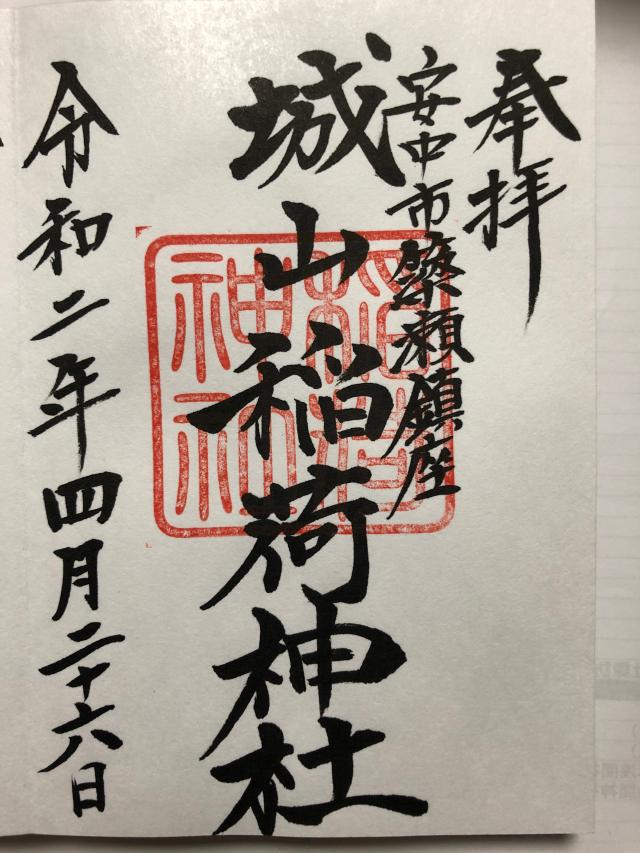 奉拝
安中市簗瀬鎮座
城山稲荷神社
稲荷
神社
令和二年四月二十六日